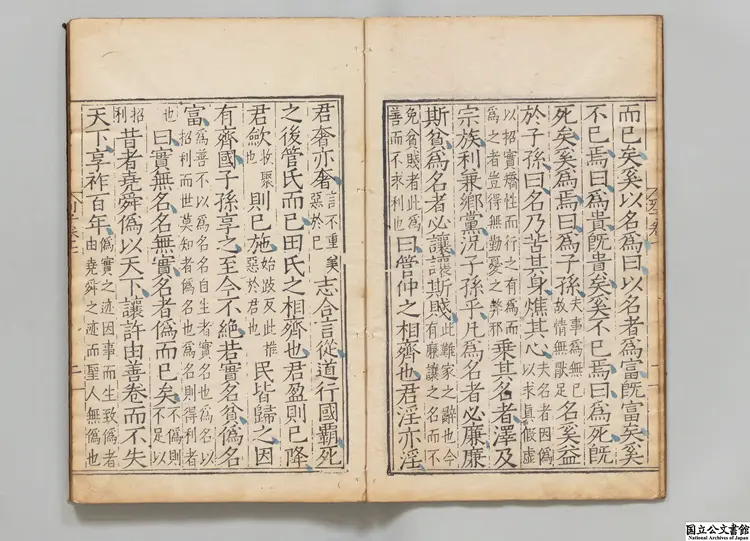 而已矣奚以名爲曰以名者爲富旣富矣奚
不已焉曰爲貴旣貴矣奚不已焉曰爲死旣
死矣奚爲焉曰爲子孫夫事爲無已故情無猒足名奚益
於子孫曰名乃苦其身燋其心夫名者因僞以求眞假虛
以招實矯性而行之有爲而爲之者豈得無勤憂之弊邪乘其名者澤及
宗族利兼鄉黨況子孫乎凡爲名者必廉廉
斯貧爲名者必讓讓斯賤此難家之辭也今有廉讓之名而不
免貧賤者此爲善而不求利也曰管仲之相齊也君淫亦淫
君奢亦奢言不重美惡於已志合言從道行國霸死
之後管氏而已田氏之相齊也君盈則已降
君歛收聚也則已施始跂反此推惡於君也民皆歸之因
有齊國子孫享之至今不絕若實名貧僞名
富爲善不以爲名名自生者實名也爲名以招利而世莫知者爲名也爲名則得利者
也曰實無名名無實名者僞而已矣不僞則不足以
招利昔者堯舜僞以天下讓許由善卷而不失
天下享祚百年僞實之迹因事而生致僞者由堯舜之迹而聖人無僞也
国立公文書館
National Archives of Japan